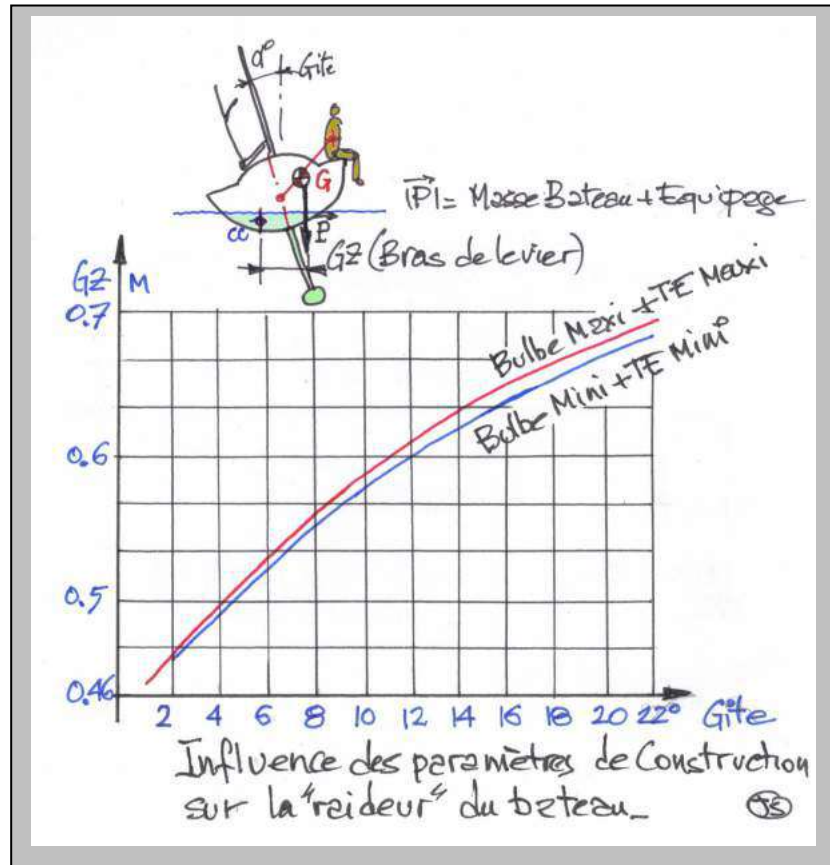 α° Gite
G
|P| = Masse Bateau + Equipage
CC
P
GZ (Bras de levier)
GZ M
0.7
Bulbe Maxi + TE Maxi
Bulbe Mini + TE Mini
0.6
0.5
0.46
2 4 6 8 10 12 14 16 18 20 22° Gite
Influence des paramètres de Construction
sur la "raideur" du bateau_
JS